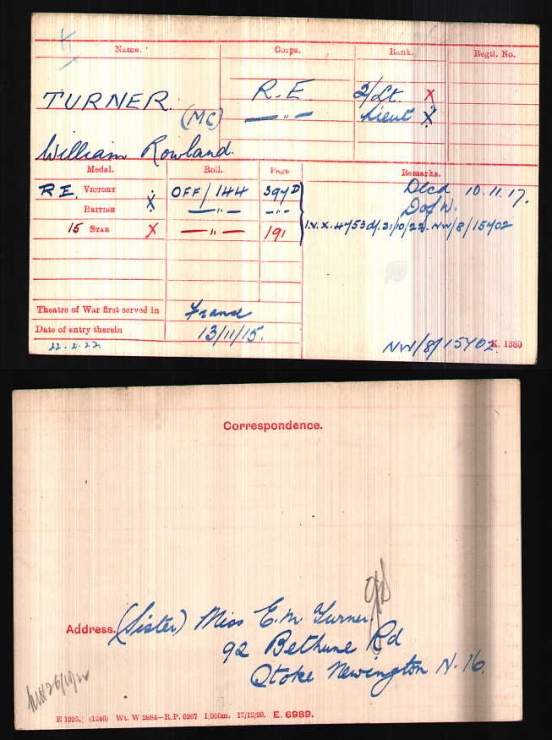 Name. Corps. Rank. Regtl. No.
TURNER. R.E. 2/Lt. X
(MC) —"— Lieut X
William Rowland.
Medal. Roll. Page. Remarks.
R.E. VICTORY X OFF/144 394D Decd 10.11.17.
BRITISH —"— —"— D of W.
15 STAR X —"— 191 I.V.X.4753d/.31/10/22. NW/8/15402
Theatre of War first served in France
Date of entry therein 13/11/15.
22.2.22 NW/8/15402. K. 1380
Correspondence.
Address. (Sister) Miss E.M. Turner.
92 Bethune Rd
Stoke Newington N.16.
E. 6989.